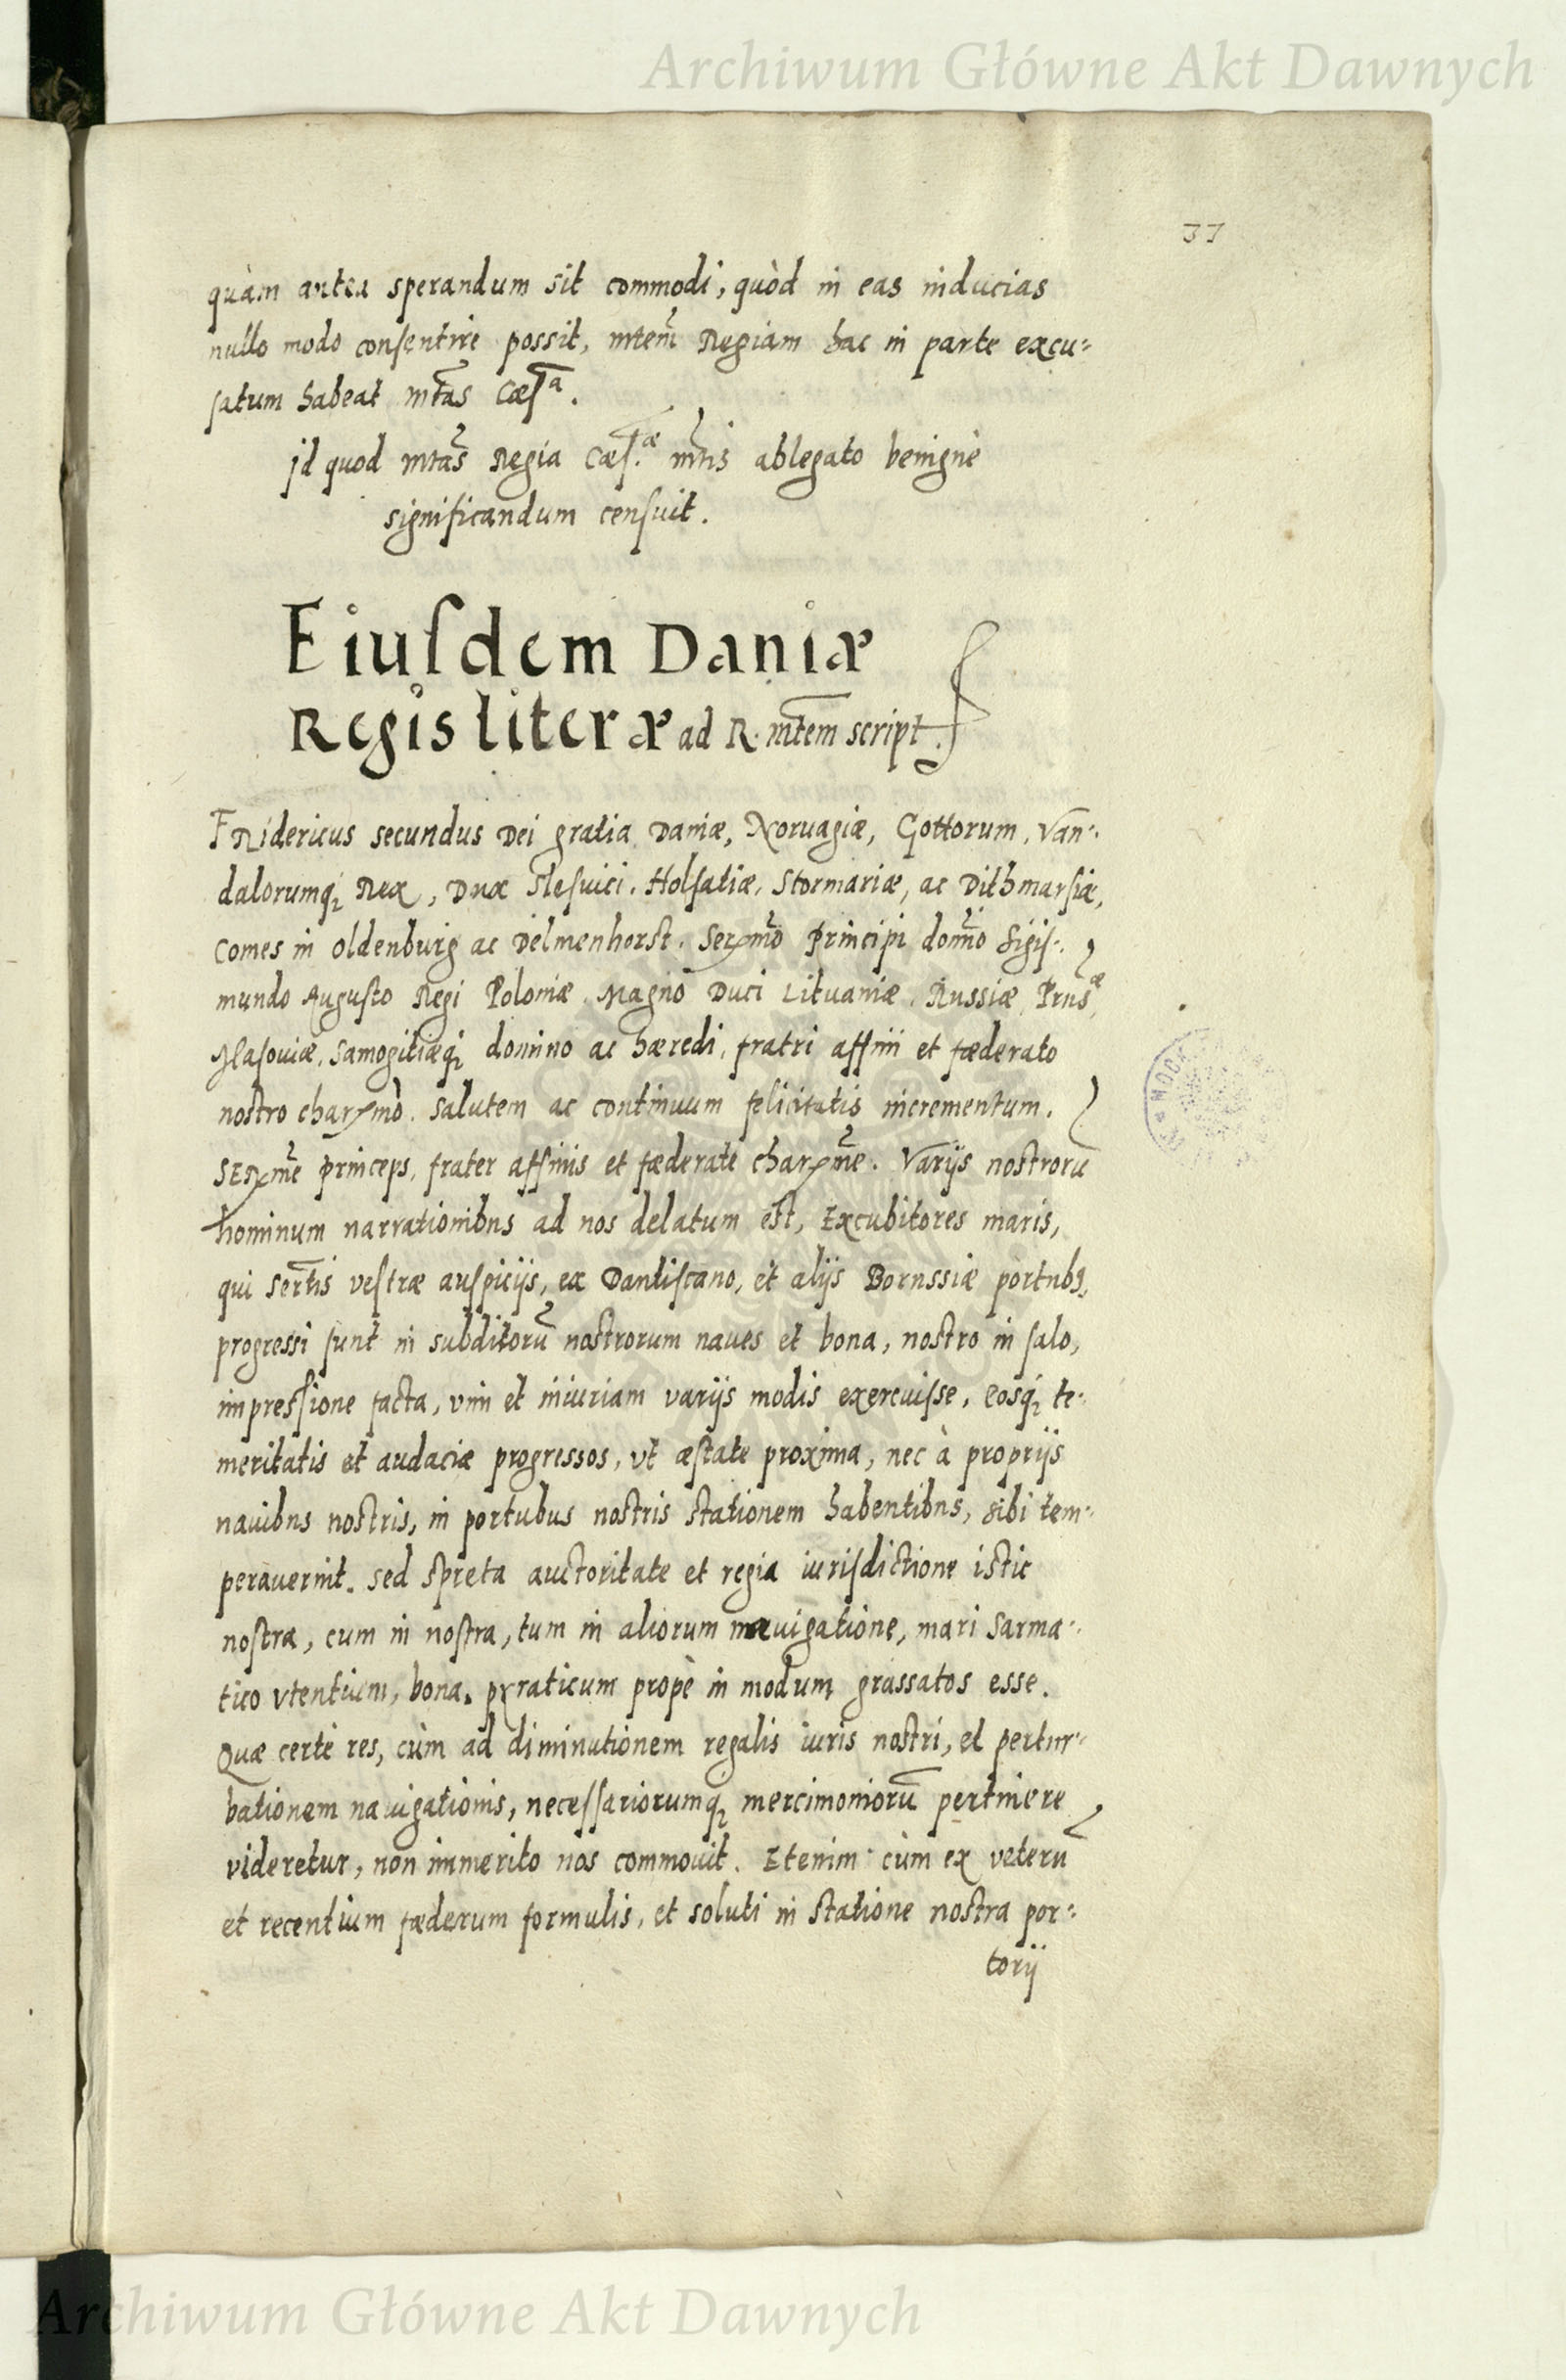 Archiwum Główne Akt Dawnych
37
quàm antea sperandum sit commodi, quòd in eas inducias
nullo modo consentire possit, mtem Regiam hac in parte excu⸗
satum habeat mtas Cæsᵃ.
Id quod mtas Regia Cæs.ᵃᵉ mtis ablegato benignè
significandum censuit.
Eiusdem Daniæ
Regis literæ ad R. mtem script.
FRidericus secundus Dei gratia Daniæ, Noruagiæ, Gottorum, Van⸗
dalorumq; Rex, Dux Slesuici, Holsatiæ, Stormariæ, ac Dithmarsiæ,
Comes in Oldenburg ac Delmenhorst. Serxmo Principi domino Sigis⸗
mundo Augusto Regi Poloniæ, Magno Duci Lituaniæ, Russiæ, Prusᵃᵉ,
Masouiæ, Samogitiæq; domino ac hæredi, fratri affini et fæderato
nostro charxmo. salutem ac continuum felicitatis incrementum.
SERxme princeps, frater affinis et fæderate charxme. Varijs nostrorū
hominum narrationibus ad nos delatum est, Excubitores maris,
qui Sertis vestræ auspicijs, ex Dantiscano, et alijs Borussiæ portubꝫ,
progressi sunt in subditorū nostrorum naues et bona, nostro in salo,
impressione facta, vim et iniuriam varijs modis exercuisse, eosq; te⸗
meritatis et audaciæ progressos, vt æstate proxima, nec à proprijs
nauibus nostris, in portubus nostris stationem habentibus, sibi tem⸗
perauerint. sed spreta auctoritate et regia iurisdictione istic
nostra, cum in nostra, tum in aliorum nauigatione, mari Sarma⸗
tico vtentium, bona. pyraticum propè in modum grassatos esse.
Quæ certè res, cùm ad diminutionem regalis iuris nostri, et pertur⸗
bationem nauigationis, necessariorumq; mercimoniorū pertinere
videretur, non immerito nos commouit. Etenim cùm ex veterū
et recentium fæderum formulis, et soluti in statione nostra por⸗
torij
Archiwum Główne Akt Dawnych